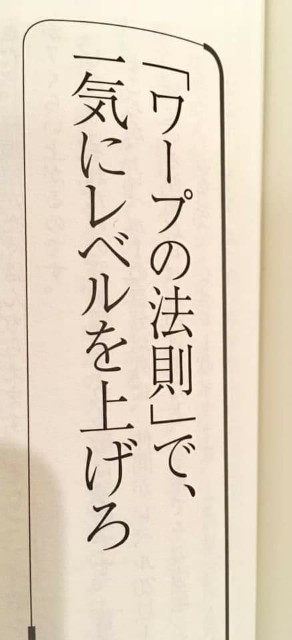 「ワープの法則」で、
一気にレベルを上げろ